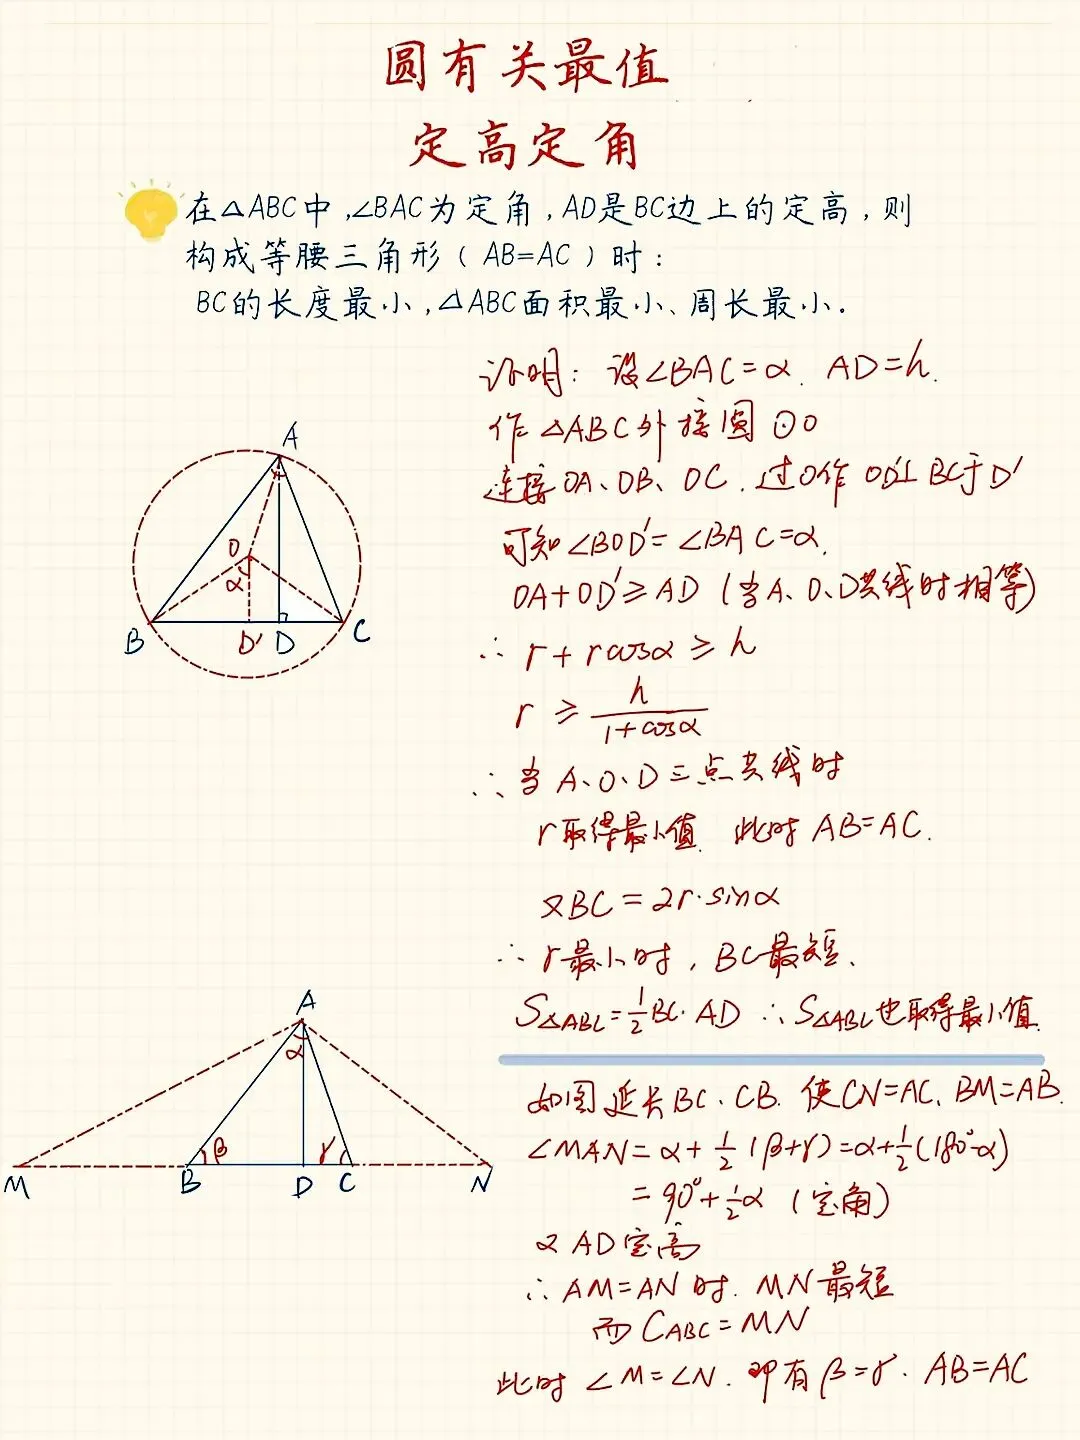 圆有关最值
定高定角
在△ABC中,∠BAC为定角,AD是BC边上的定高,则
构成等腰三角形(AB=AC)时:
BC的长度最小,△ABC面积最小、周长最小.
证明: 设∠BAC=α. AD=h.
作△ABC外接圆⊙O
连接OA、OB、OC. 过O作OD'⊥BC于D'
可知∠BOD'=∠BAC=α.
OA+OD'≥AD (当A、O、D共线时相等)
∴ r+rcosα≥h
r≥h/(1+cosα)
∴当A、O、D三点共线时
r取得最小值. 此时AB=AC.
又BC=2r·sinα
∴r最小时,BC最短.
S△ABC=1/2BC·AD ∴S△ABC也取得最小值.
A
O
α
B
D'
D
C
如图延长BC、CB. 使CN=AC、BM=AB.
∠MAN=α+1/2(β+γ)=α+1/2(180°-α)
=90°+1/2α (定角)
又AD定高
∴AM=AN时. MN最短
而CABC=MN
此时∠M=∠N. 即有β=γ. AB=AC
A
α
β
γ
M
B
D
C
N